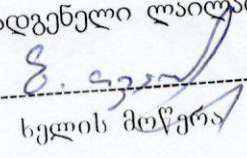 ადგენელი ლაილა
ხელის მოწერა